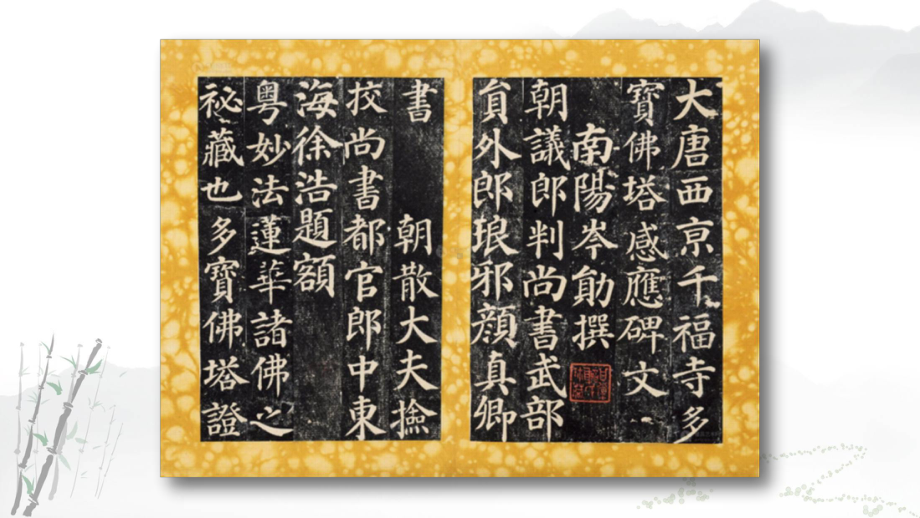 大唐西亰千福寺多
寶佛塔感應碑文
南陽岑勛撰
朝議郎判尚書武部
貟外郎琅邪顔真卿
書 朝散大夫撿
挍尚書都官郎中東
海徐浩題額
粤妙法蓮華諸佛之
祕藏也多寶佛塔證